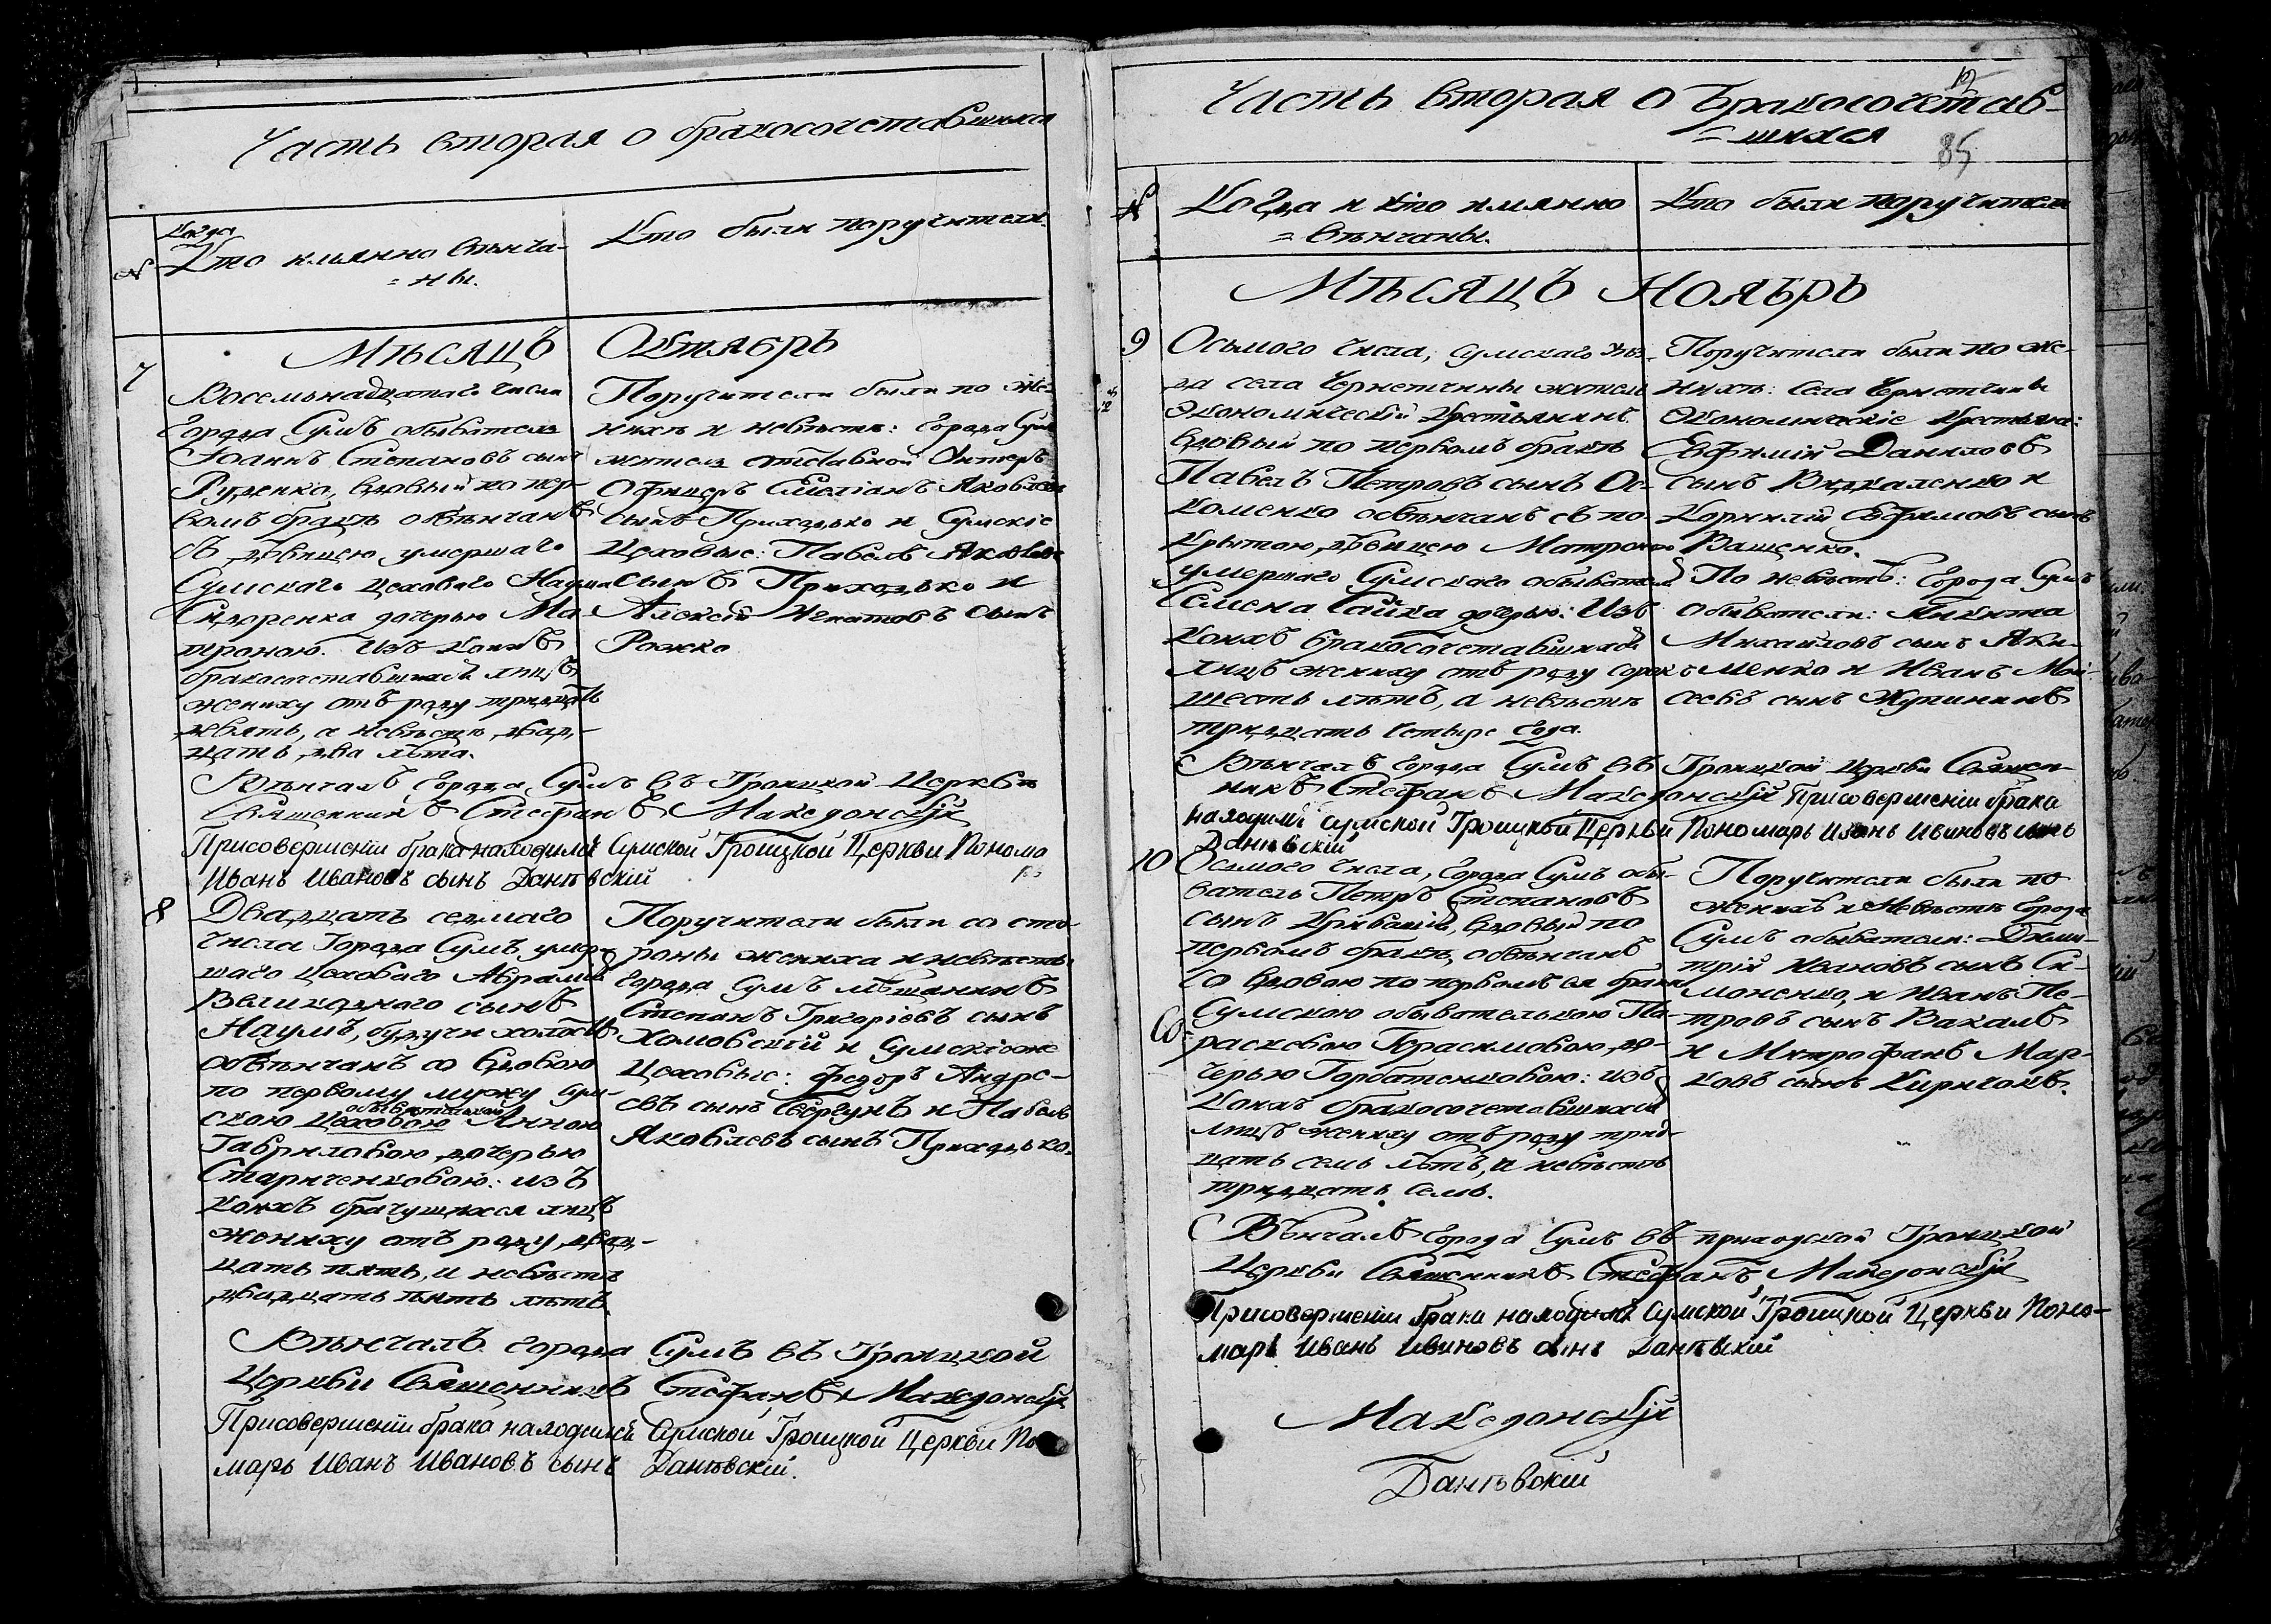 Часть вторая о бракосочетавшихся
№
Когда
Кто имянно венча-
= ны.
Кто были поручители.
Мѣсяцъ Октябрь
7
Восемьнадцатаго числа
Города Сумъ обыватель
Іоаннъ Степановъ сынъ
Руденко, вдовый по пер-
вомъ бракѣ обвѣнчанъ
съ дѣвицею умершаго
Сумскаго цеховаго Наума
Сидоренка дочерью Ма-
троною. Изъ коихъ
бракосочетавшихся лицъ
жениху отъ роду тридцать
девять, а невѣстѣ двад-
цать два лѣта.
Поручители были по же-
нихѣ и невѣстѣ: Города Сумъ
житель отставной Унтеръ
Офицеръ Яковлевъ
сынъ Приходько и Сумскіе
Цеховые: Павелъ Яковлевъ
сынъ Приходько и
Алексѣй Игнатовъ сынъ
Рожко
Вѣнчалъ Города Сумъ въ Троицкой Церквѣ
Священникъ Стефанъ Македонскій
Присовершеніи брака находился Сумской Троицкой Церкви Пономарь
Иванъ Ивановъ сынъ Данѣвскій
8
Двадцать седмаго
числа Города Сумъ умер-
шаго цеховаго Абрама
Великоднаго сынъ
Наумъ, будучи холостъ
обвѣнчанъ со вдовою
по первому мужу Сум-
обывателькою
скою цеховою Анною
Гавриловою дочерью
Старченковою: изъ
коихъ брачущихся лицъ
жениху отъ роду двад-
цать пять, и невѣстѣ
двадцать пять лѣтъ.
Поручители были со сто-
роны жениха и невѣсты
Города Сумъ мѣщанинъ
Степанъ Григоріевъ сынъ
Хомовскій и Сумскіе же
Цеховые: Федоръ Андре-
евъ сынъ Свергунъ и Павелъ
Яковлевъ сынъ Приходько.
Вѣнчалъ города Сумъ въ Троицкой
Церкви Священникъ Стефанъ Македонскій
Присовершеніи брака находился Сумской Троицкой Церкви Поно
марь Иванъ Ивановъ сынъ Данѣвскій.
Часть вторая о бракосочетав-
= шихся
85
№
Когда и кто имянно
= вѣнчаны.
Кто были поручители
Мѣсяцъ Ноябрь
9
Осьмого числа, Сумскаго Уѣз-
да села Чернетчины житель
Экономическій крестьянинъ
вдовый по первомъ бракѣ
Павелъ Петровъ сынъ Ос-
коменко обвѣнчанъ съ по-
крытою дѣвицею Матроною
умершаго Сумскаго обывателя
Семена Сайка дочерью: Изъ
коихъ бракосочетавшихся
лицъ жениху отъ роду сорокъ
шесть лѣтъ, а невѣстѣ
тридцать четыре года.
Поручители были по же-
нихѣ: Села Чернетчины
Економическіе крестьяне:
Евфимій Даниловъ
сынъ Вакаленко и
Корнилій Ефимовъ сынъ
Ващенко.
По невѣстѣ: Города Сумъ
Обыватели: Никита
Михайловъ сынъ Яки-
менко и Иванъ Мои-
сеевъ сынъ Жупининъ
Вѣнчалъ Города Сумъ въ Троицкой Церкви Священ-
никъ Стефанъ Македонскій Присовершеніи брака
находился Сумской Троицкой Церкви Пономарь Иванъ Ивановъ сынъ
Данѣвскій
10
Осьмого числа, Города Сумъ обы-
ватель Петръ Степановъ
сынъ вдовый по
первомъ бракѣ, обвѣнчанъ
со вдовою по первомъ ея бракѣ
Сумскою обывателькою Па-
расковою Герасимовою до-
черью Горбатенковою: изъ
коихъ бракосочетавшихся
лицъ жениху отъ роду трид-
цать семь лѣтъ, и невѣстѣ
тридцать семь.
Поручители были по
женихѣ и Невѣстѣ Города
Сумъ обыватели: Дими-
трій Ивановъ сынъ Си-
моненко, и Иванъ Пе-
тровъ сынъ Вакалъ
и Митрофанъ Мар-
ковъ сынъ Киричокъ.
Вѣнчалъ Города Сумъ въ приходской Троицкой
Церкви Священникъ Стефанъ Македонскій
Присовершеніи брака находился Сумской Троицкой Церкви Поно-
марь Иванъ Ивановъ сынъ Данѣвскій
Македонскій
Данѣвскій